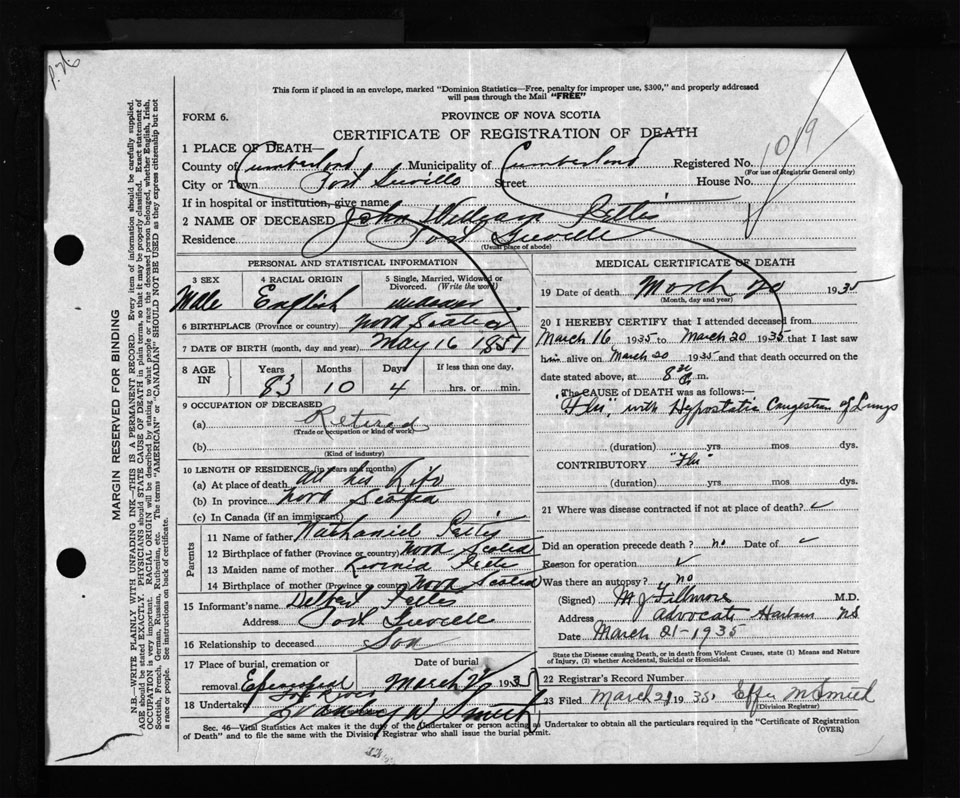 This form if placed in an envelope, marked "Dominion Statistics—Free, penalty for improper use, $300," and properly addressed
will pass through the Mail "FREE"
FORM 6.
PROVINCE OF NOVA SCOTIA
CERTIFICATE OF REGISTRATION OF DEATH
1 PLACE OF DEATH—
County of Cumberland Municipality of Cumberland Registered No. 1019
(For use of Registrar General only)
City or Town Port Greville Street House No.
If in hospital or institution, give name
2 NAME OF DECEASED John William Pettis
Residence Port Greville
(Usual place of abode)
PERSONAL AND STATISTICAL INFORMATION
3 SEX 4 RACIAL ORIGIN 5 Single, Married, Widowed or Divorced. (Write the word)
Male English
6 BIRTHPLACE (Province or country) Nova Scotia
7 DATE OF BIRTH (month, day and year) May 16 1851
8 AGE IN Years Months Days If less than one day,
83 10 4 hrs. or min.
9 OCCUPATION OF DECEASED
(a) Retired
(Trade or occupation or kind of work)
(b)
(Kind of industry)
10 LENGTH OF RESIDENCE (in years and months)
(a) At place of death All his Life
(b) In province Nova Scotia
(c) In Canada (if an immigrant)
Parents
11 Name of father Nathaniel Pettis
12 Birthplace of father (Province or country) Nova Scotia
13 Maiden name of mother
14 Birthplace of mother (Province or country) Nova Scotia
15 Informant's name Pettis
Address Port Greville
16 Relationship to deceased Son
17 Place of burial, cremation or Date of burial
removal March 193
18 Undertaker
MEDICAL CERTIFICATE OF DEATH
19 Date of death March 20 1935
(Month, day and year)
20 I HEREBY CERTIFY that I attended deceased from
March 16 1935 to March 20 1935 that I last saw
him alive on March 20 1935 and that death occurred on the
date stated above, at 8 m.
The CAUSE OF DEATH was as follows:—
"Flu", with Hypostatic Congestion of Lungs
(duration) yrs mos dys.
CONTRIBUTORY "Flu"
(duration) yrs mos dys.
21 Where was disease contracted if not at place of death?
Did an operation precede death? no Date of
Reason for operation
Was there an autopsy? no
(Signed) M J Fillmore M.D.
Address Advocate Harbour NS
Date March 21-1935
State the Disease causing Death, or in death from Violent Causes, state (1) Means and
Nature of Injury, (2) whether Accidental, Suicidal or Homicidal.
22 Registrar's Record Number
23 Filed March 21 1935
(Division Registrar)
Sec. 46—Vital Statistics Act makes it the duty of the Undertaker or person acting as Undertaker to obtain all the particulars required in the "Certificate of Registration
of Death" and to file the same with the Division Registrar who shall issue the burial permit.
(OVER)
MARGIN RESERVED FOR BINDING
N.B.—WRITE PLAINLY WITH UNFADING INK—THIS IS A PERMANENT RECORD. Every item of information should be carefully supplied.
AGE should be stated EXACTLY. PHYSICIANS should STATE CAUSE OF DEATH in plain terms, so that it may be properly classified. Exact statement of
OCCUPATION is very important. RACIAL ORIGIN will be described by stating to what people or race the deceased person belonged, whether English, Irish,
Scottish, French, German, Russian, Ruthenian, etc. The terms "AMERICAN" or "CANADIAN" SHOULD NOT BE USED as they express citizenship but not
a race or people. See instructions on back of certificate.